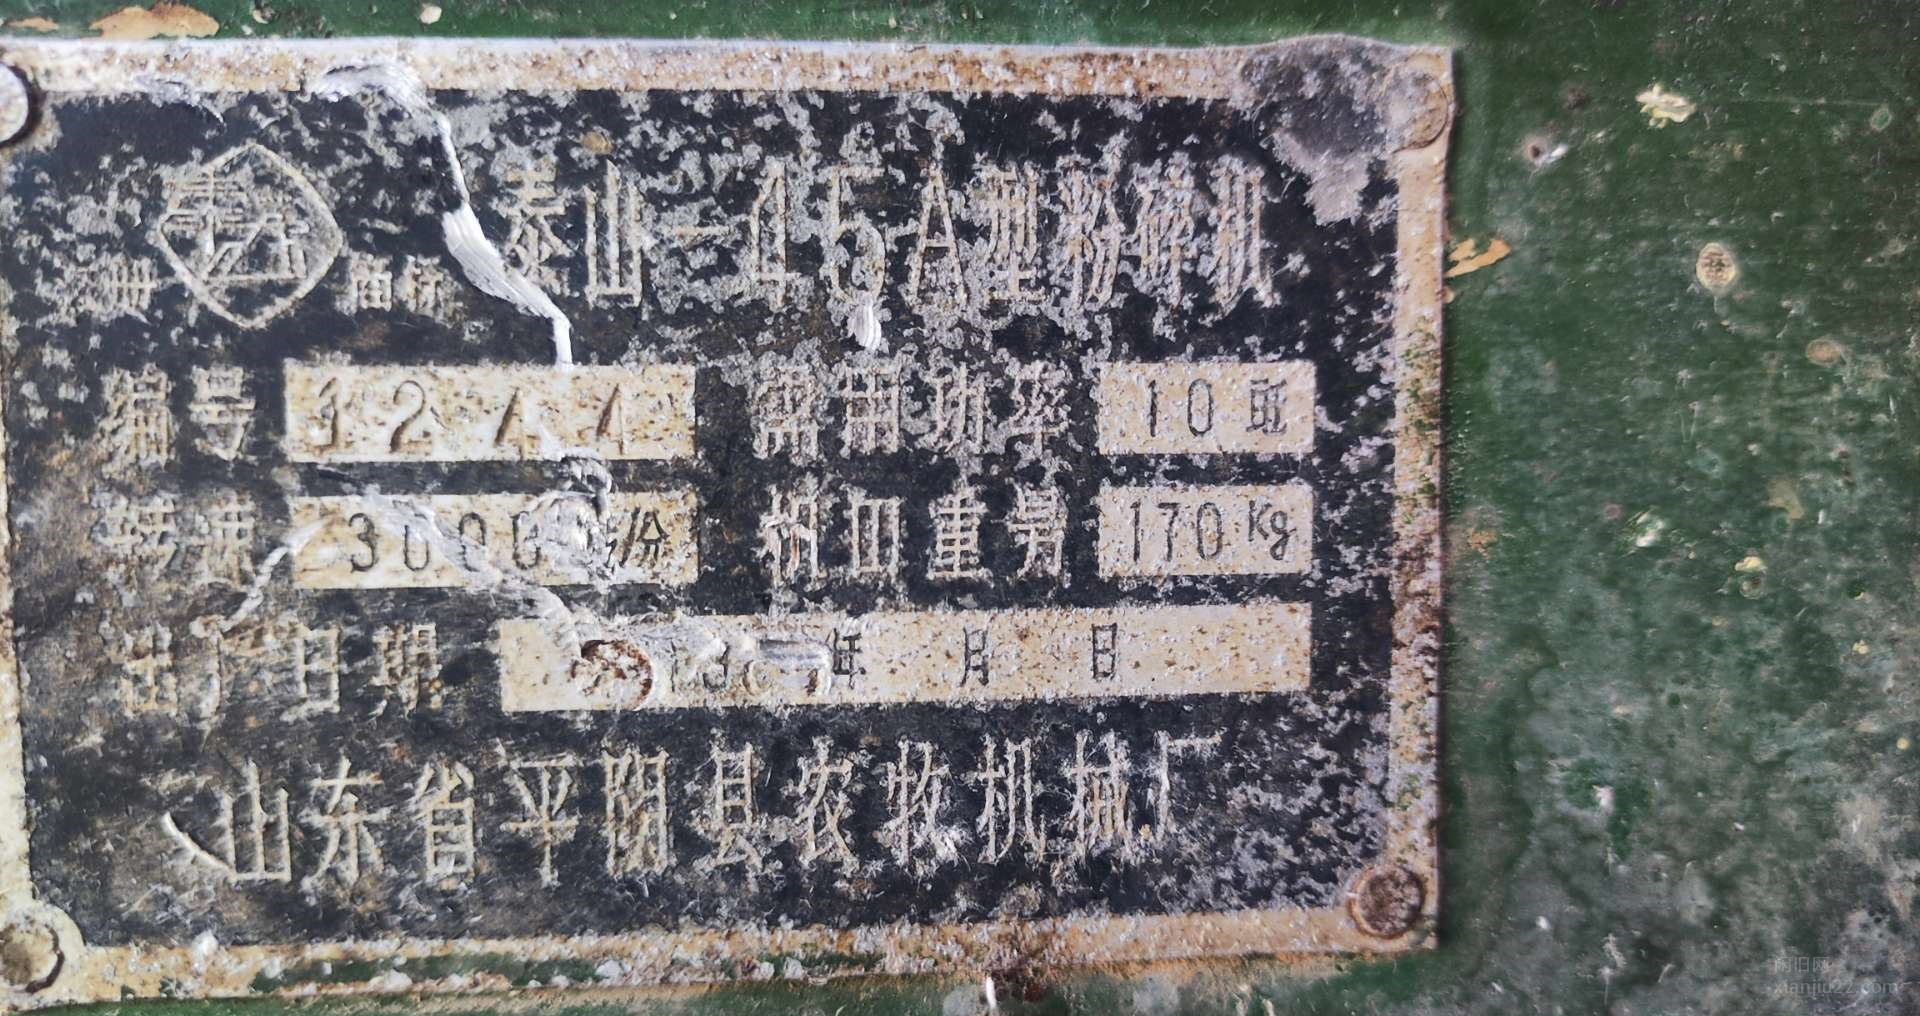 注册 泰山 商标 泰山-45A型粉碎机
编号 配用功率 10瓩
转速 3600转/分 机口重量 170Kg
出产日期 19 年 月 日
山东省平阴县农牧机械厂
闲旧网
xianjiu22.com